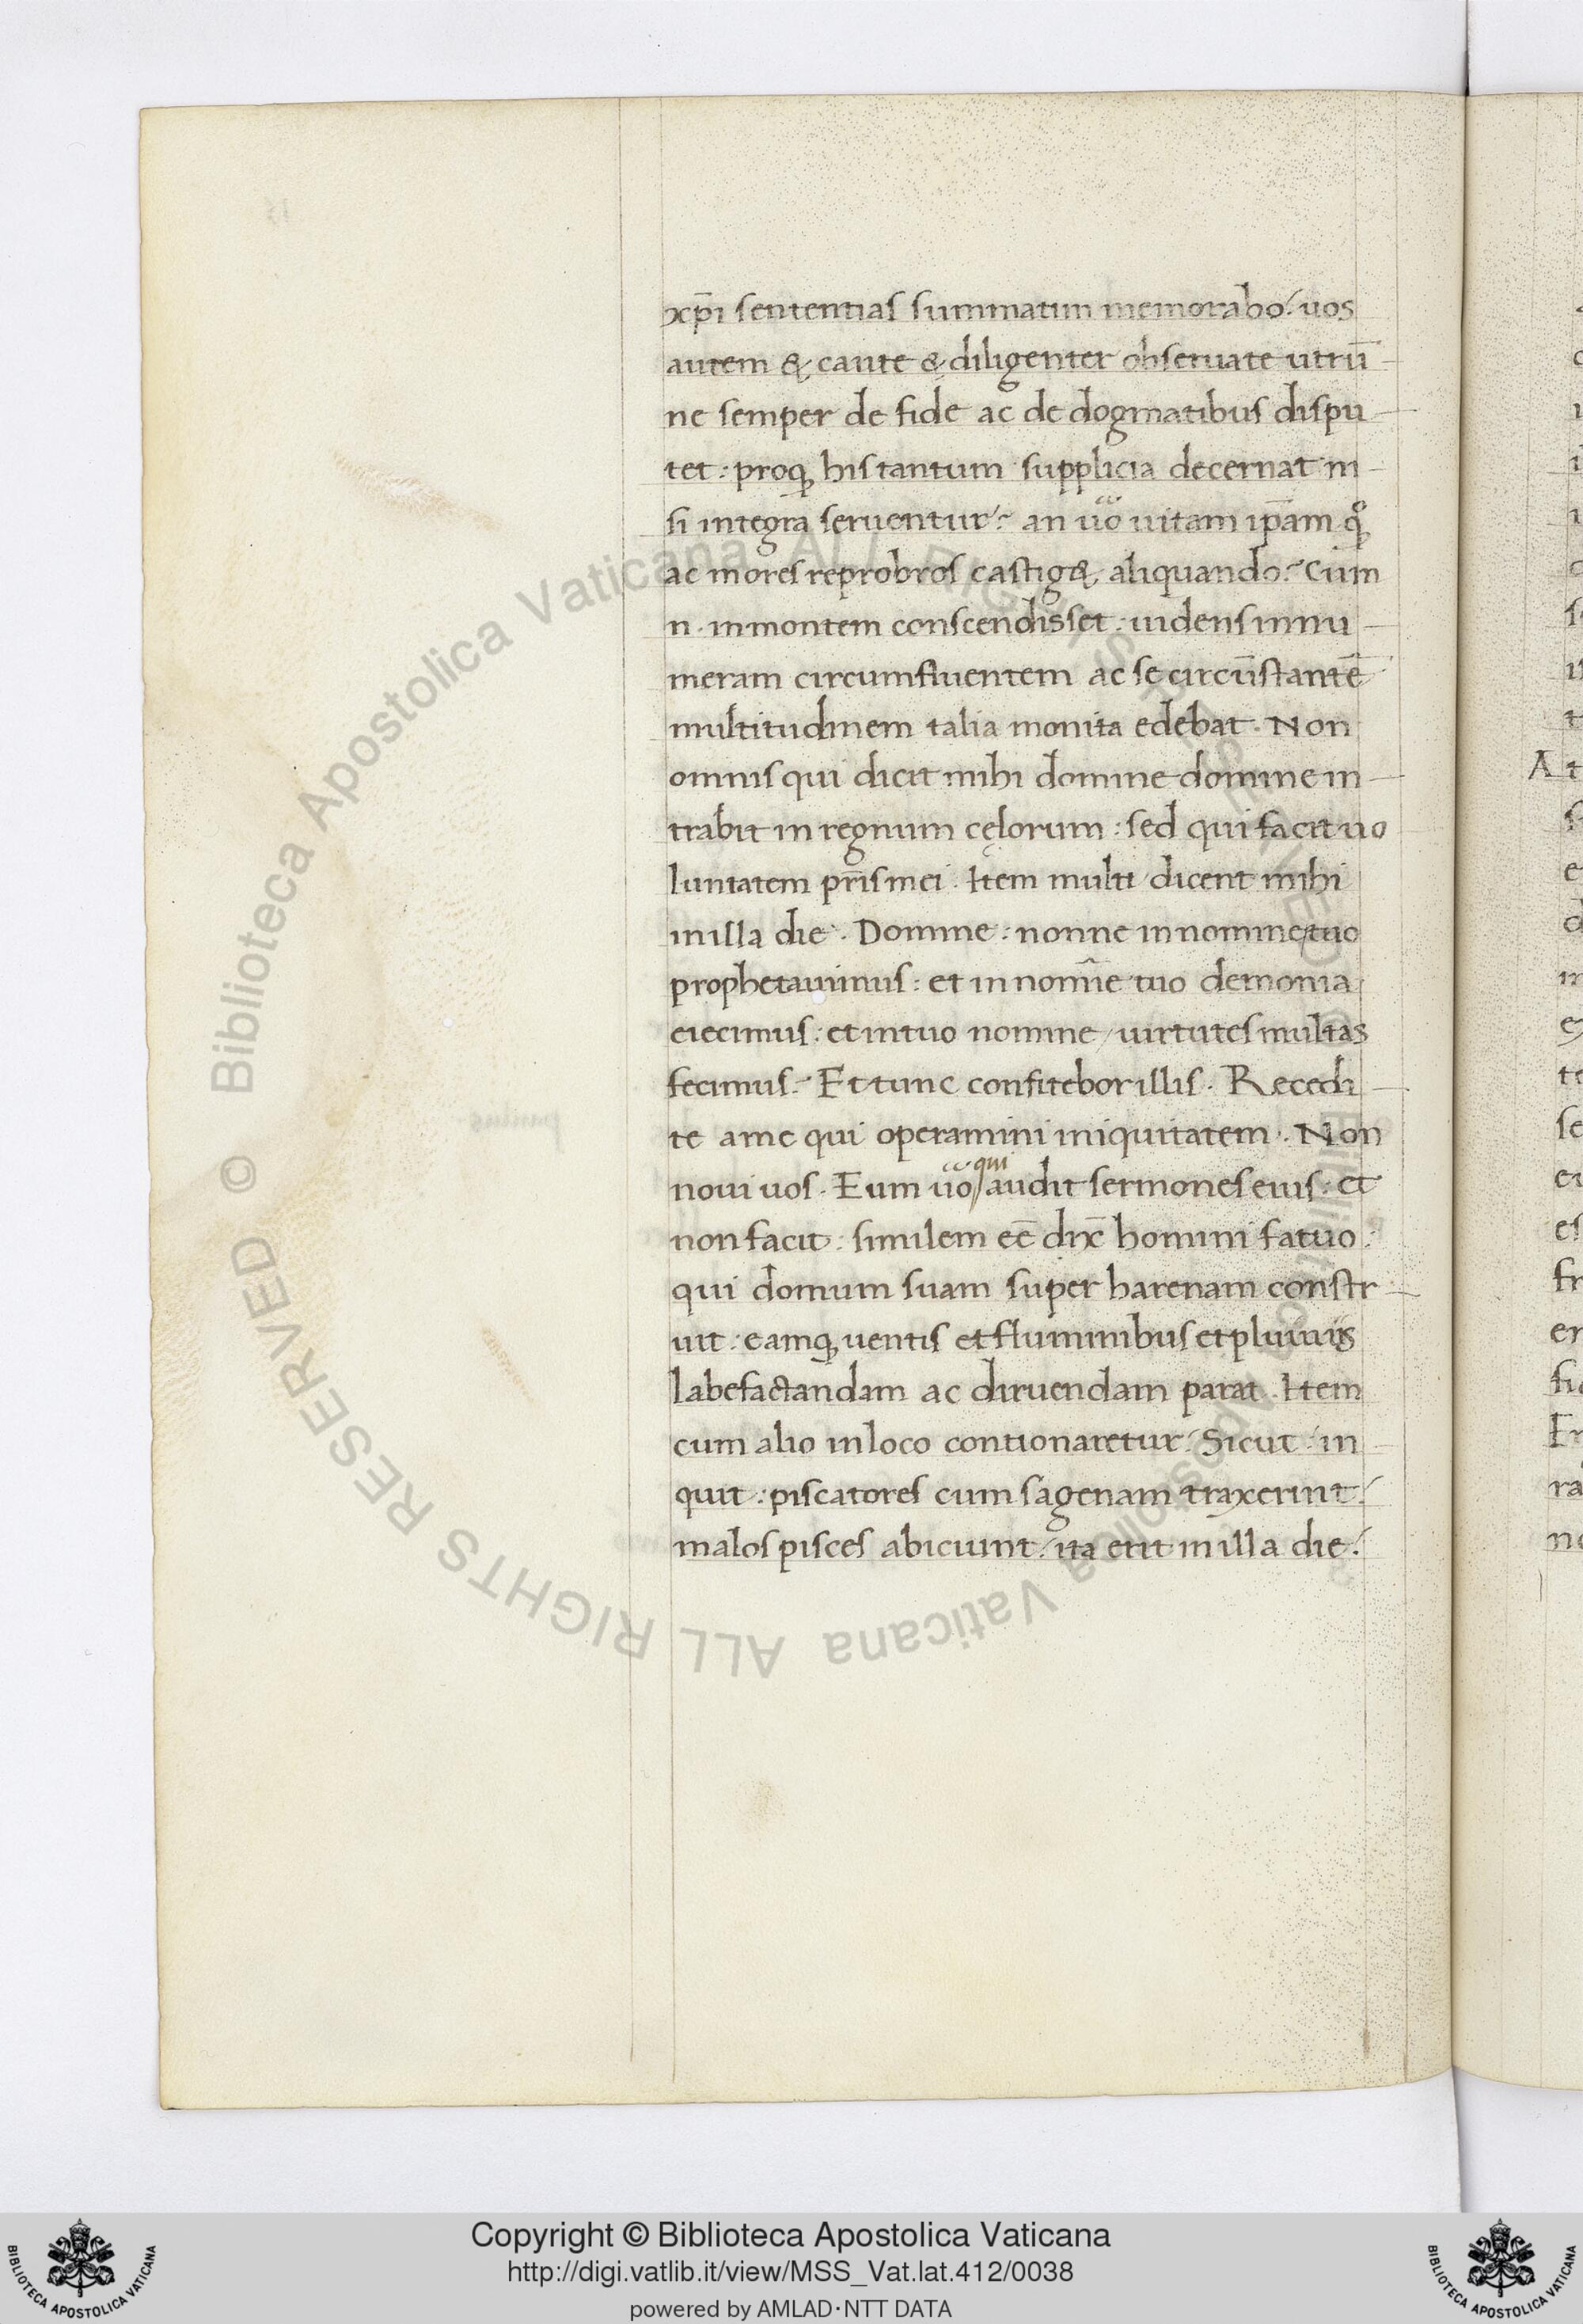 xp̄i sententias summatim memorabo: uos
autem & caute & diligenter obseruate utrū
ne semper de fide ac de dogmatibus dispu
tet: proq; his tantum supplicia decernat ni
si integra seruentur: an uo uitam ip̄am q͛;
ac mores reprobros castig& aliquando: Cum
n· in montem conscendisset: uidens innu
meram circumfluentem ac se circūstantē
multitudinem talia monita edebat. Non
omnis qui dicit mihi domine domine in
trabit in regnum cęlorum: sed qui facit uo
luntatem pr̄is mei. Item multi dicent mihi
in illa die. Domine: nonne in nomine tuo
prophetauimus: et in nomīe tuo demonia
eiecimus: et in tuo nomine uirtutes multas
fecimus. Et tunc confitebor illis. Recedi
te a me qui operamini iniquitatem. Non
noui uos. Eum uo qui audit sermones eius: et
non facit: similem eē dix̄ homini fatuo:
qui domum suam super harenam constr
uit: eamq; uentis et fluminibus et pluuiis
labefactandam ac diruendam parat. Item
cum alio in loco contionaretur: Sicut: in
quit: piscatores cum sagenam traxerint:
malos pisces abiciunt: ita erit in illa die:
© Biblioteca Apostolica Vaticana ALL RIGHTS RESERVED
© Biblioteca Apostolica Vaticana ALL RIGHTS RESERVED
Copyright © Biblioteca Apostolica Vaticana
http://digi.vatlib.it/view/MSS_Vat.lat.412/0038
powered by AMLAD·NTT DATA
BIBLIOTECA APOSTOLICA VATICANA
BIBLIOTECA APOSTOLICA VATICANA